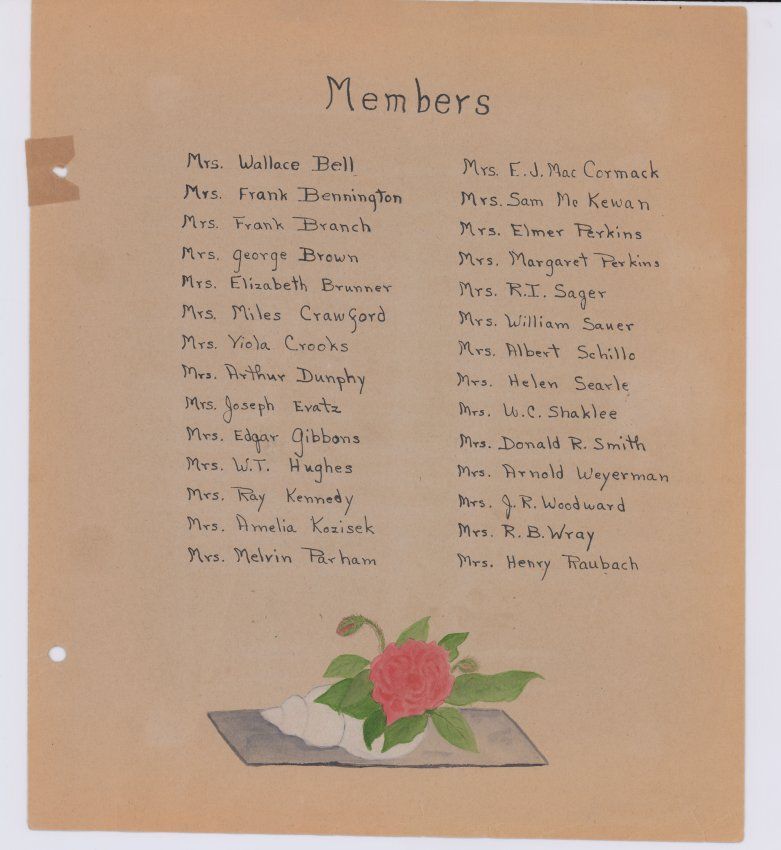 Members
Mrs. Wallace Bell
Mrs. Frank Bennington
Mrs. Frank Branch
Mrs. George Brown
Mrs. Elizabeth Brunner
Mrs. Miles Crawford
Mrs. Viola Crooks
Mrs. Arthur Dunphy
Mrs. Joseph Evatz
Mrs. Edgar Gibbons
Mrs. W.T. Hughes
Mrs. Ray Kennedy
Mrs. Amelia Kozisek
Mrs. Melvin Parham
Mrs. E.J. Mac Cormack
Mrs. Sam Mc Kewan
Mrs. Elmer Perkins
Mrs. Margaret Perkins
Mrs. R.I. Sager
Mrs. William Sauer
Mrs. Albert Schillo
Mrs. Helen Searle
Mrs. W.C. Shaklee
Mrs. Donald R. Smith
Mrs. Arnold Weyerman
Mrs. J.R. Woodward
Mrs. R.B. Wray
Mrs. Henry Raubach